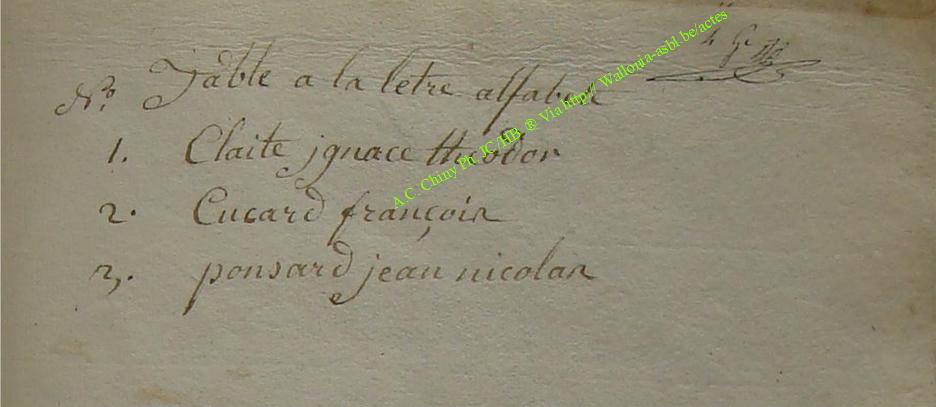 N.º Table a la letre alfabet
1. Claite jgnace theodor
2. Cucard françois
3. ponsard jean nicolas
A.C. Chiny Ph. JC/HB ® Via http://Wallonia-asbl.be/actes